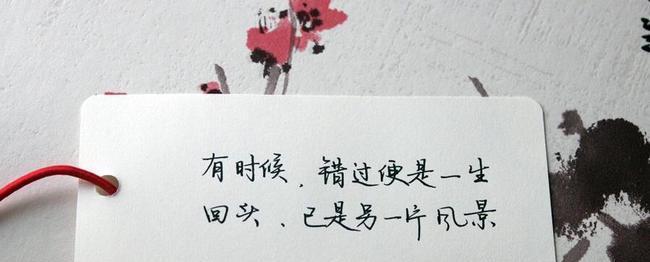 有时候，错过便是一生
回头、已是另一片风景